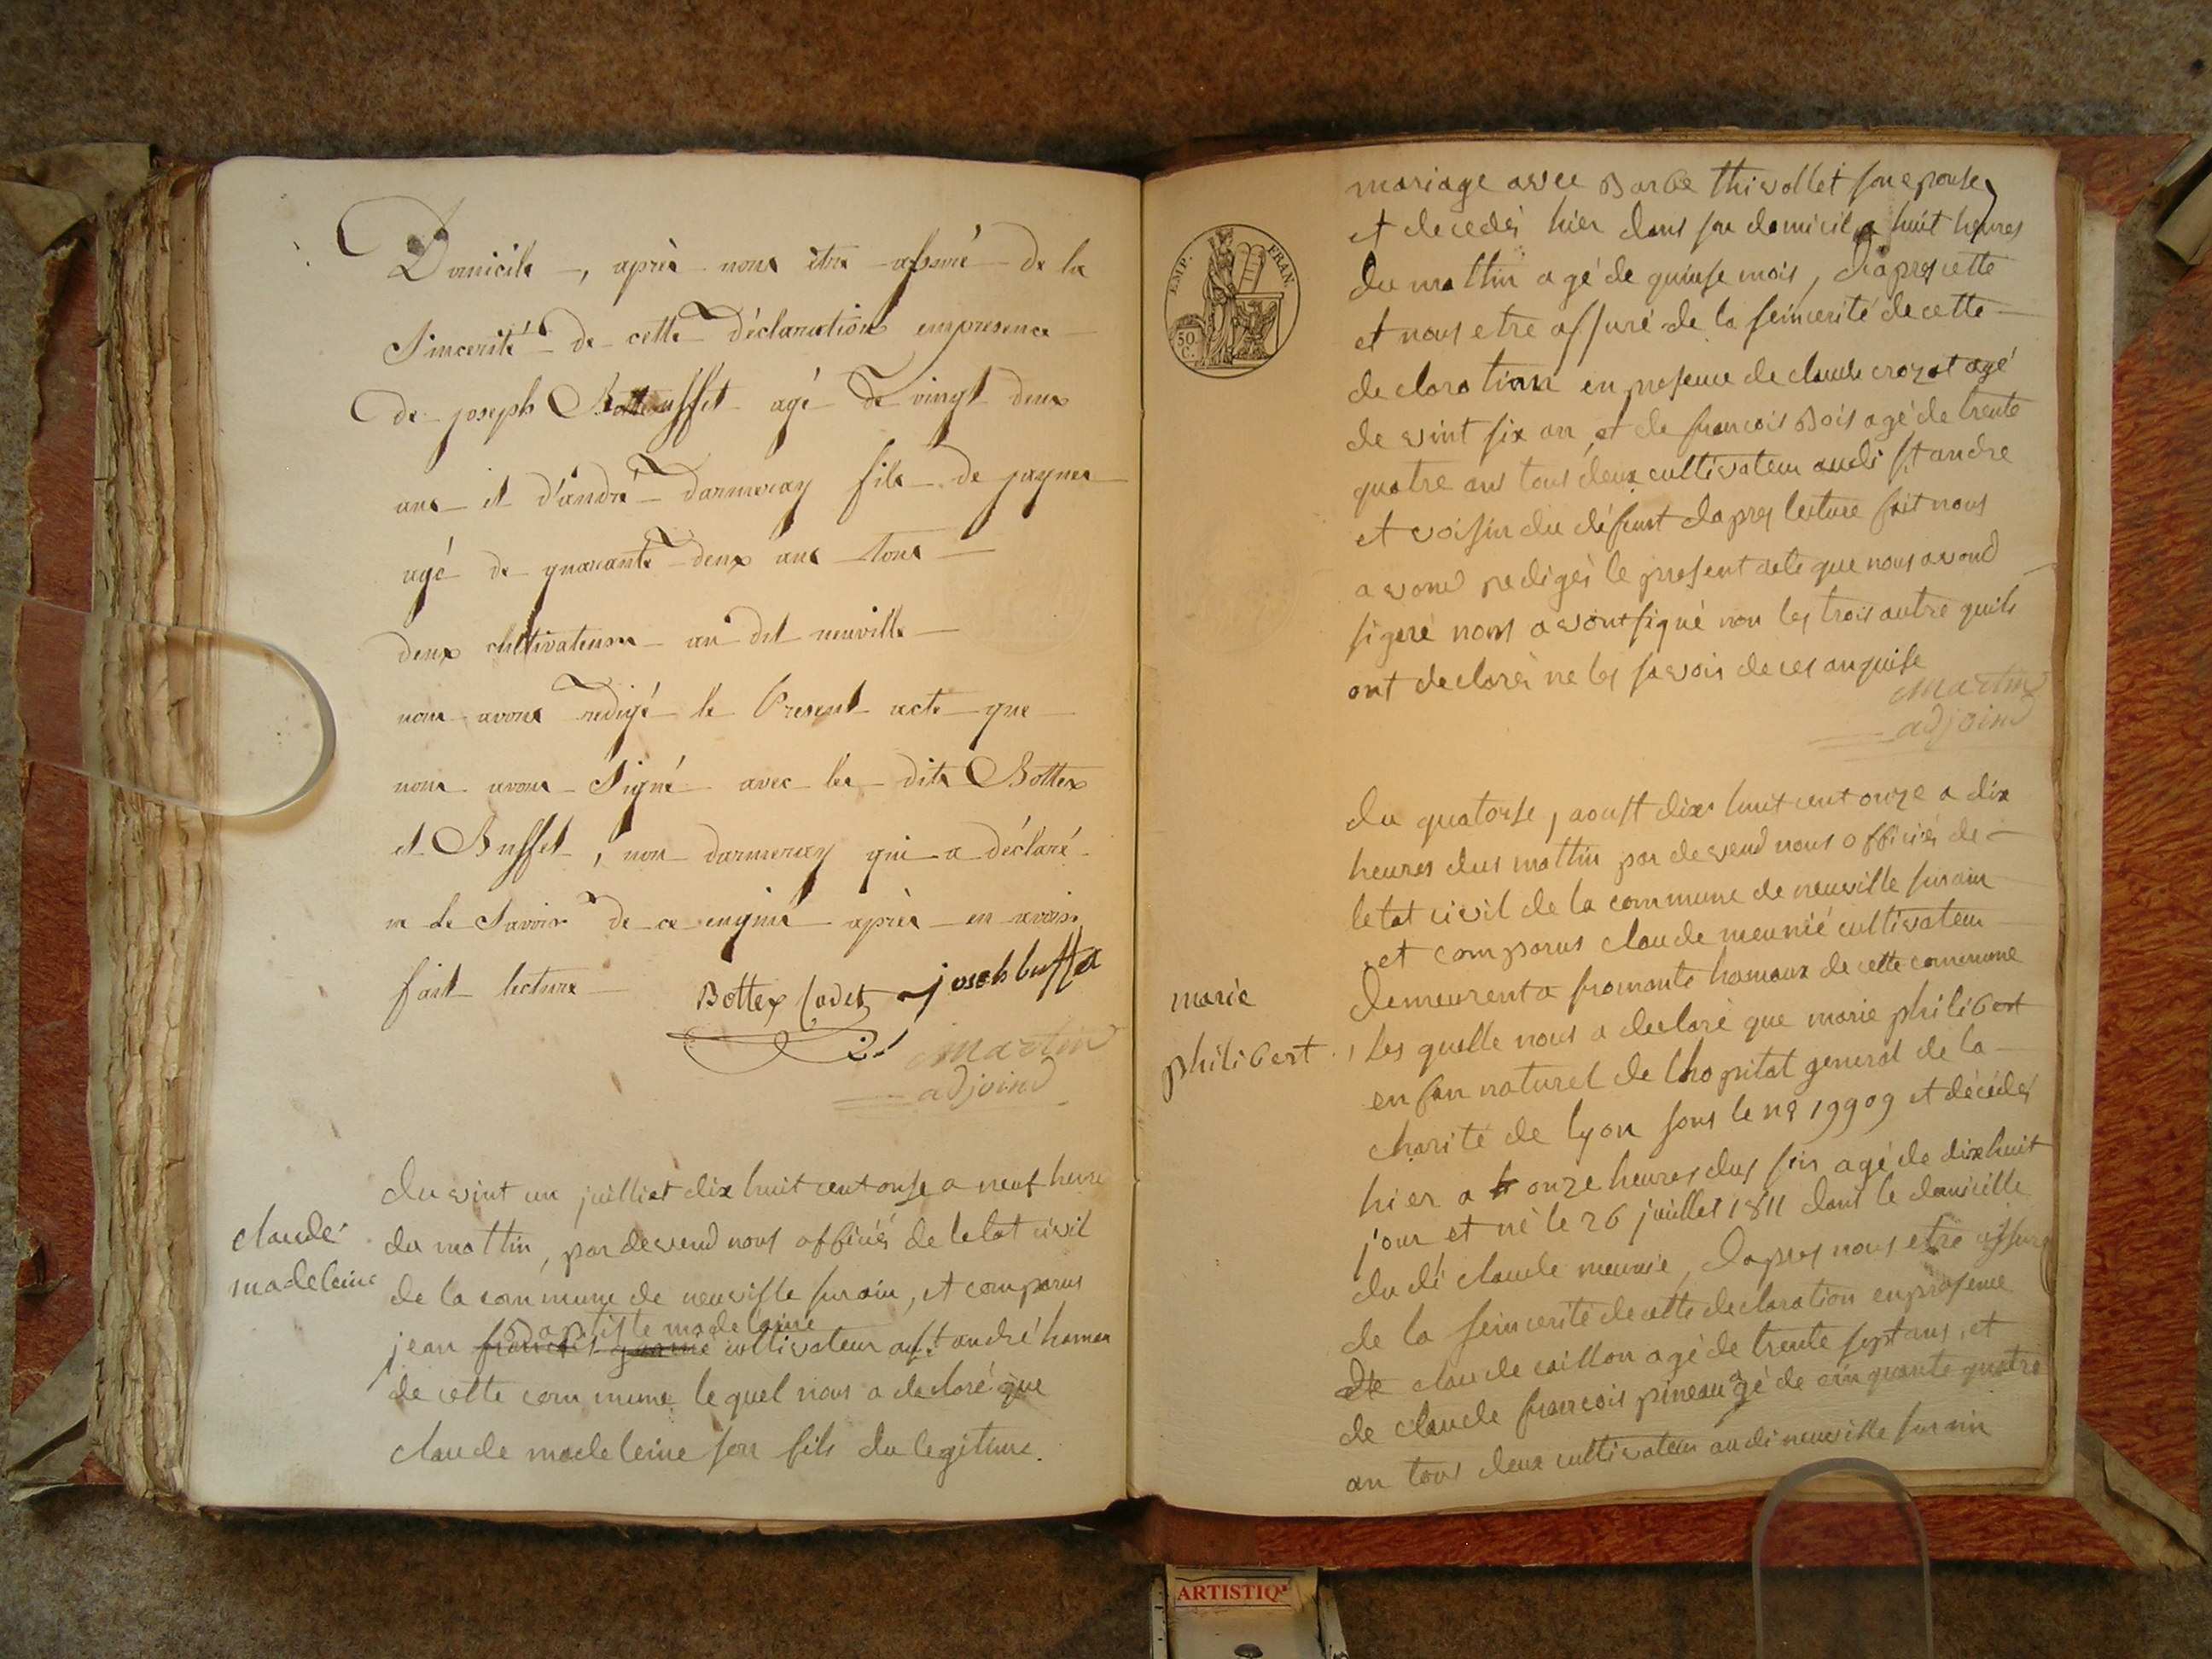 Domicile, après nous être assuré de la
Sincerité de cette déclaration empresence
de joseph Buffet agé de vingt deux
ans et d'andré darmeray fils de
agé de quarante deux ans tous
deux cultivateurs au dit neuville
nous avons redigé le Present acte que
nous avons Signé avec les dits Bottex
et Buffet, non darmeray qui a déclaré
ne le Savoir de ce enquis après en avoir
fait lecture
Bottex Cadet joseh buffet
Martin
adjoind
claude
madeleine
du vint un juilliet dix huit cent onse a neuf heure
du mattin, par devend nous officiés de letat civil
de la commune de neuville surain, et comparus
baptiste madeleine
jean francois cultivateur a st andré hamau
de cette commune le quel nous a declaré que
claude madeleine son fils du legitime.
EMP. FRAN.
50 C.
mariage avec Barbe thivollet son epouse,
et decedés hier dans son domicil a huit heures
du mattin agé de quinse mois, daprescette
et nous etre assuré de la seincerité de cette
declaration en presence de claude crozat agé
de vint six an, et de francois Bois agé de trente
quatre ans tous deux cultivateur audi st andre
et voisin du défunt dapres lecture fait nous
avond redigés le present acte que nous avond
signé nous avont signé non les trois autre quils
ont declarés ne les savoir de ces anquise
Martin
adjoind
marie
philibert
du quatorse, aoust dix huit cent onze a dix
heures dus mattin par devend nous officiés de
letat civil de la commune de neuville surain
et comparus claude meunié cultivateur
demeurent a fromente hamaux de cette commune
Les quelle nous a declaré que marie philibert
enfan naturel de lhopital general de la
charité de lyon sous le no 19909 et décédés
hier a onze heures dus soir agé de dixhuit
jour et né le 26 juillet 1811 dans le domicille
du di claude meunié, dapres nous etre assuré
de la seincerité de cette declaration enpresence
de claude caillon agé de trente sept ans, et
de claude francois pineau agé de cinquante quatre
an tous deux cultivateur audi neuville surain
ARTISTIQ